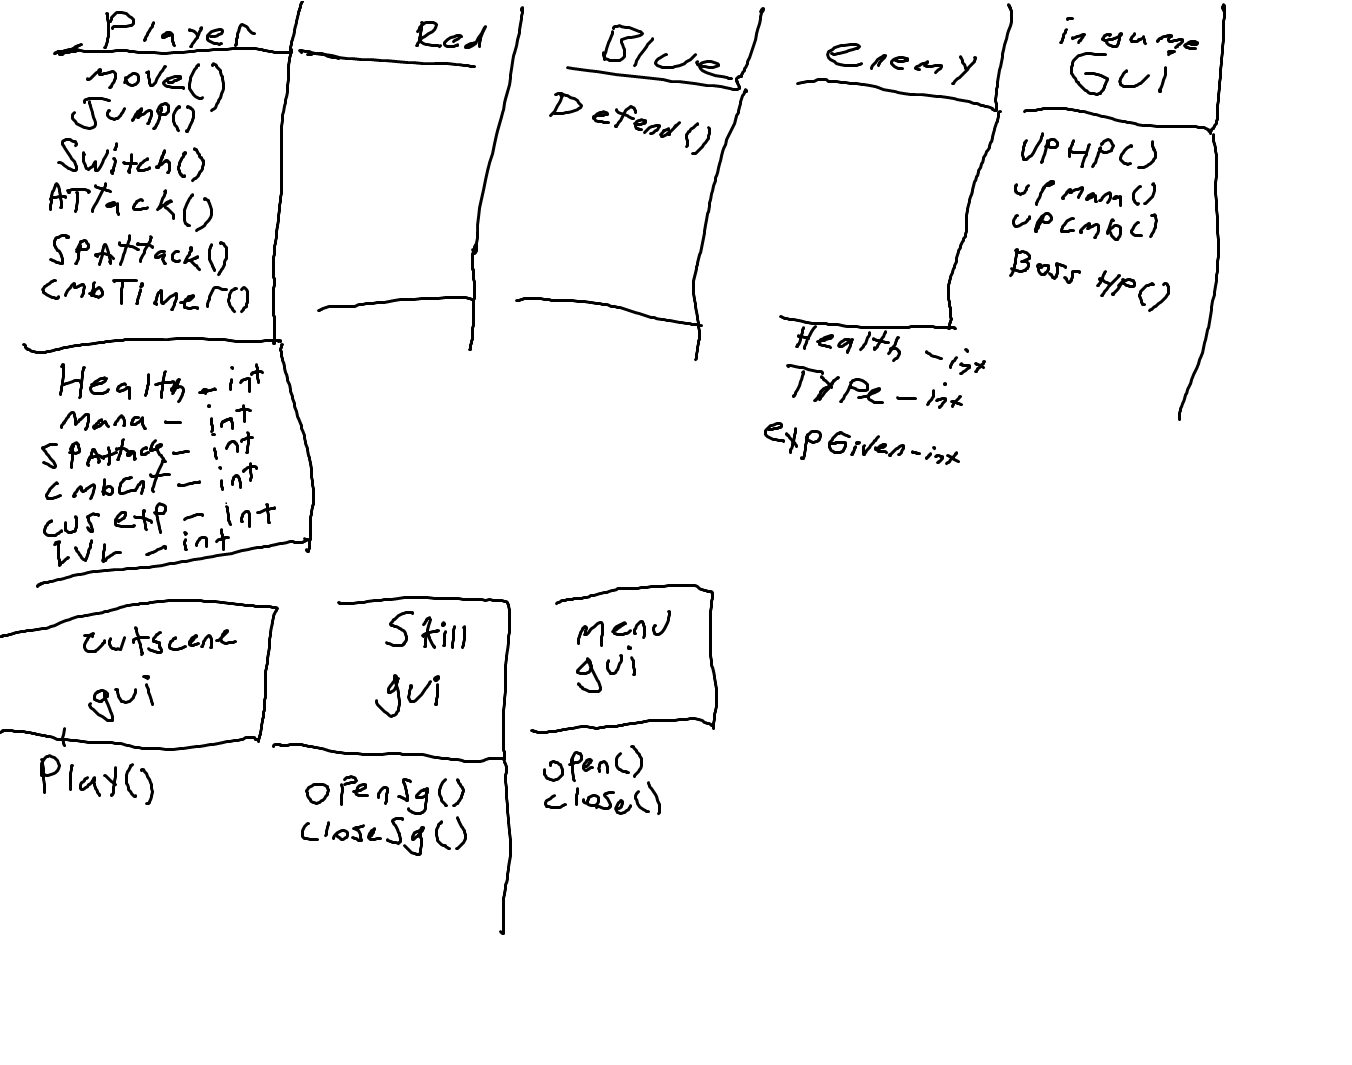 Player
move()
Jump()
Switch()
ATTack()
SPAttack()
cmbTimer()
Health - int
mana - int
SPAttack - int
cmbcnt - int
cur exp - int
LVL - int
Red
Blue
Defend()
enemy
Health - int
TYPe - int
expGiven - int
in game
Gui
UPHP()
upmana()
UPcmb()
Boss HP()
cutscene
gui
Play()
Skill
gui
openSg()
closeSg()
menu
gui
open()
close()